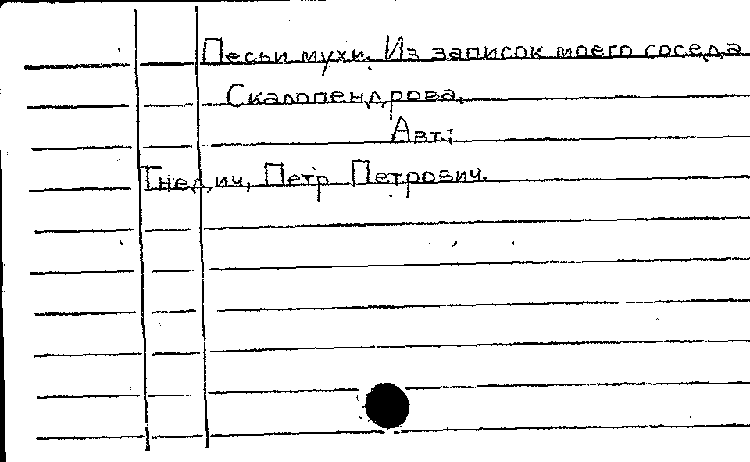 Песьи мухи. Из записок моего соседа
Скалопендрова.
Авт.:
Гнедич, Петр Петрович.